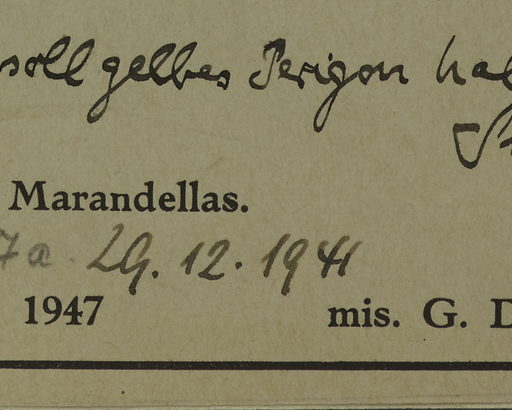 soll gelbes Perigon hab
Marandellas.
7a. 29. 12. 1941
1947 mis. G. D